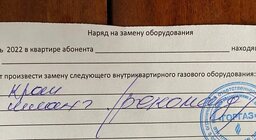 Наряд на замену оборудования
ь 2022 в квартире абонента находя
ет произвести замену следующего внутриквартирного газового оборудования:
кран
шланг